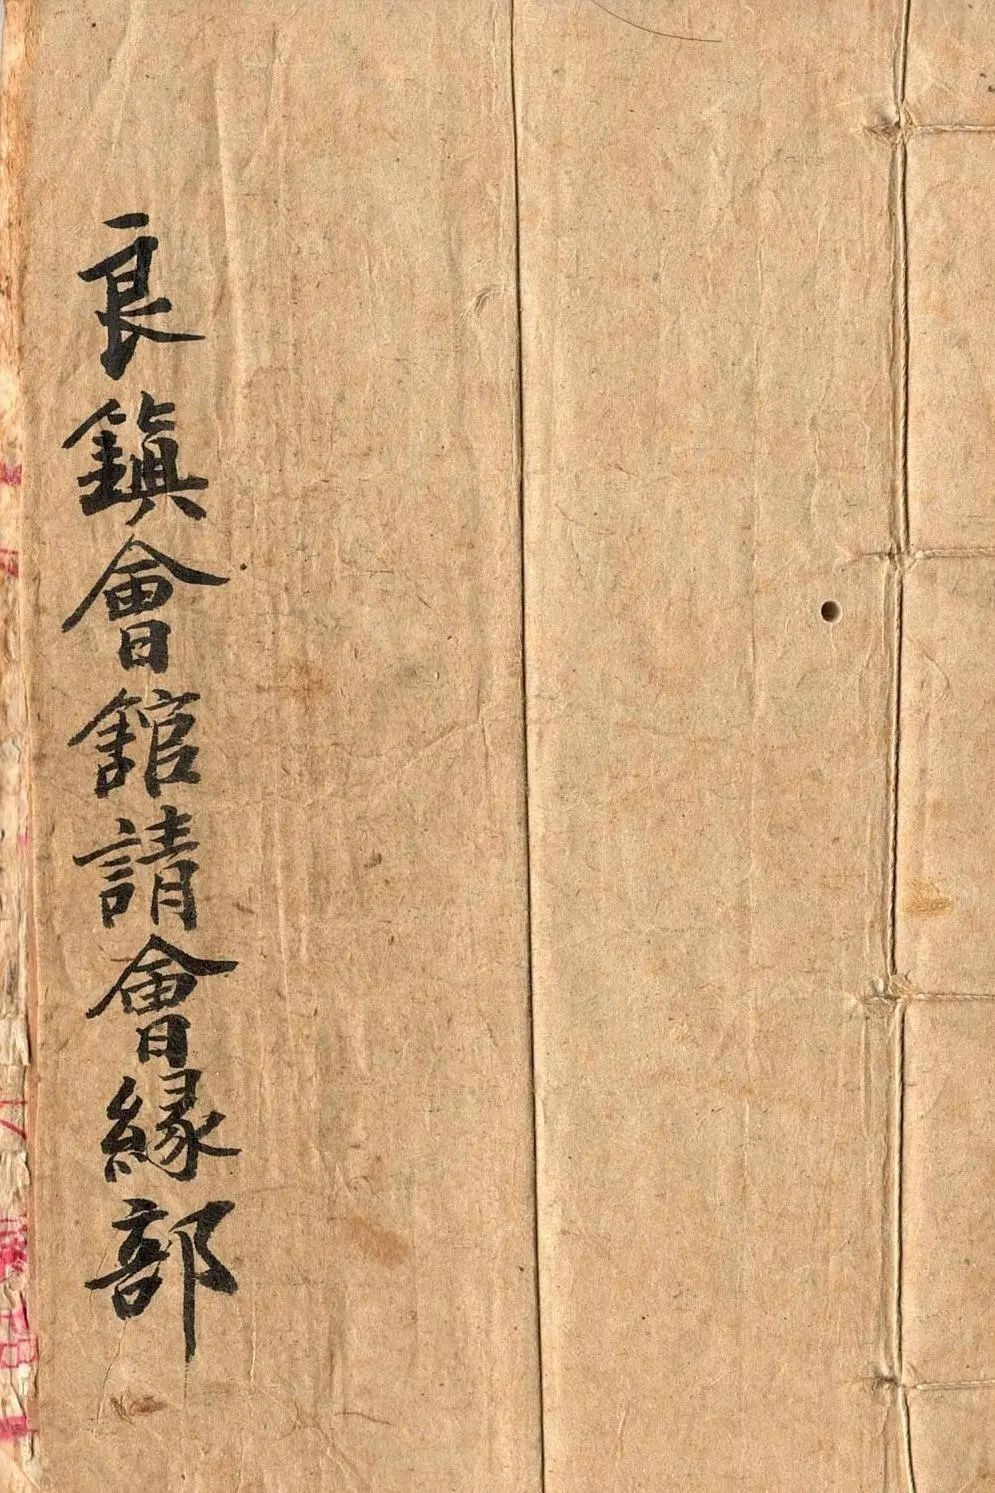 良鎮會館請會緣部